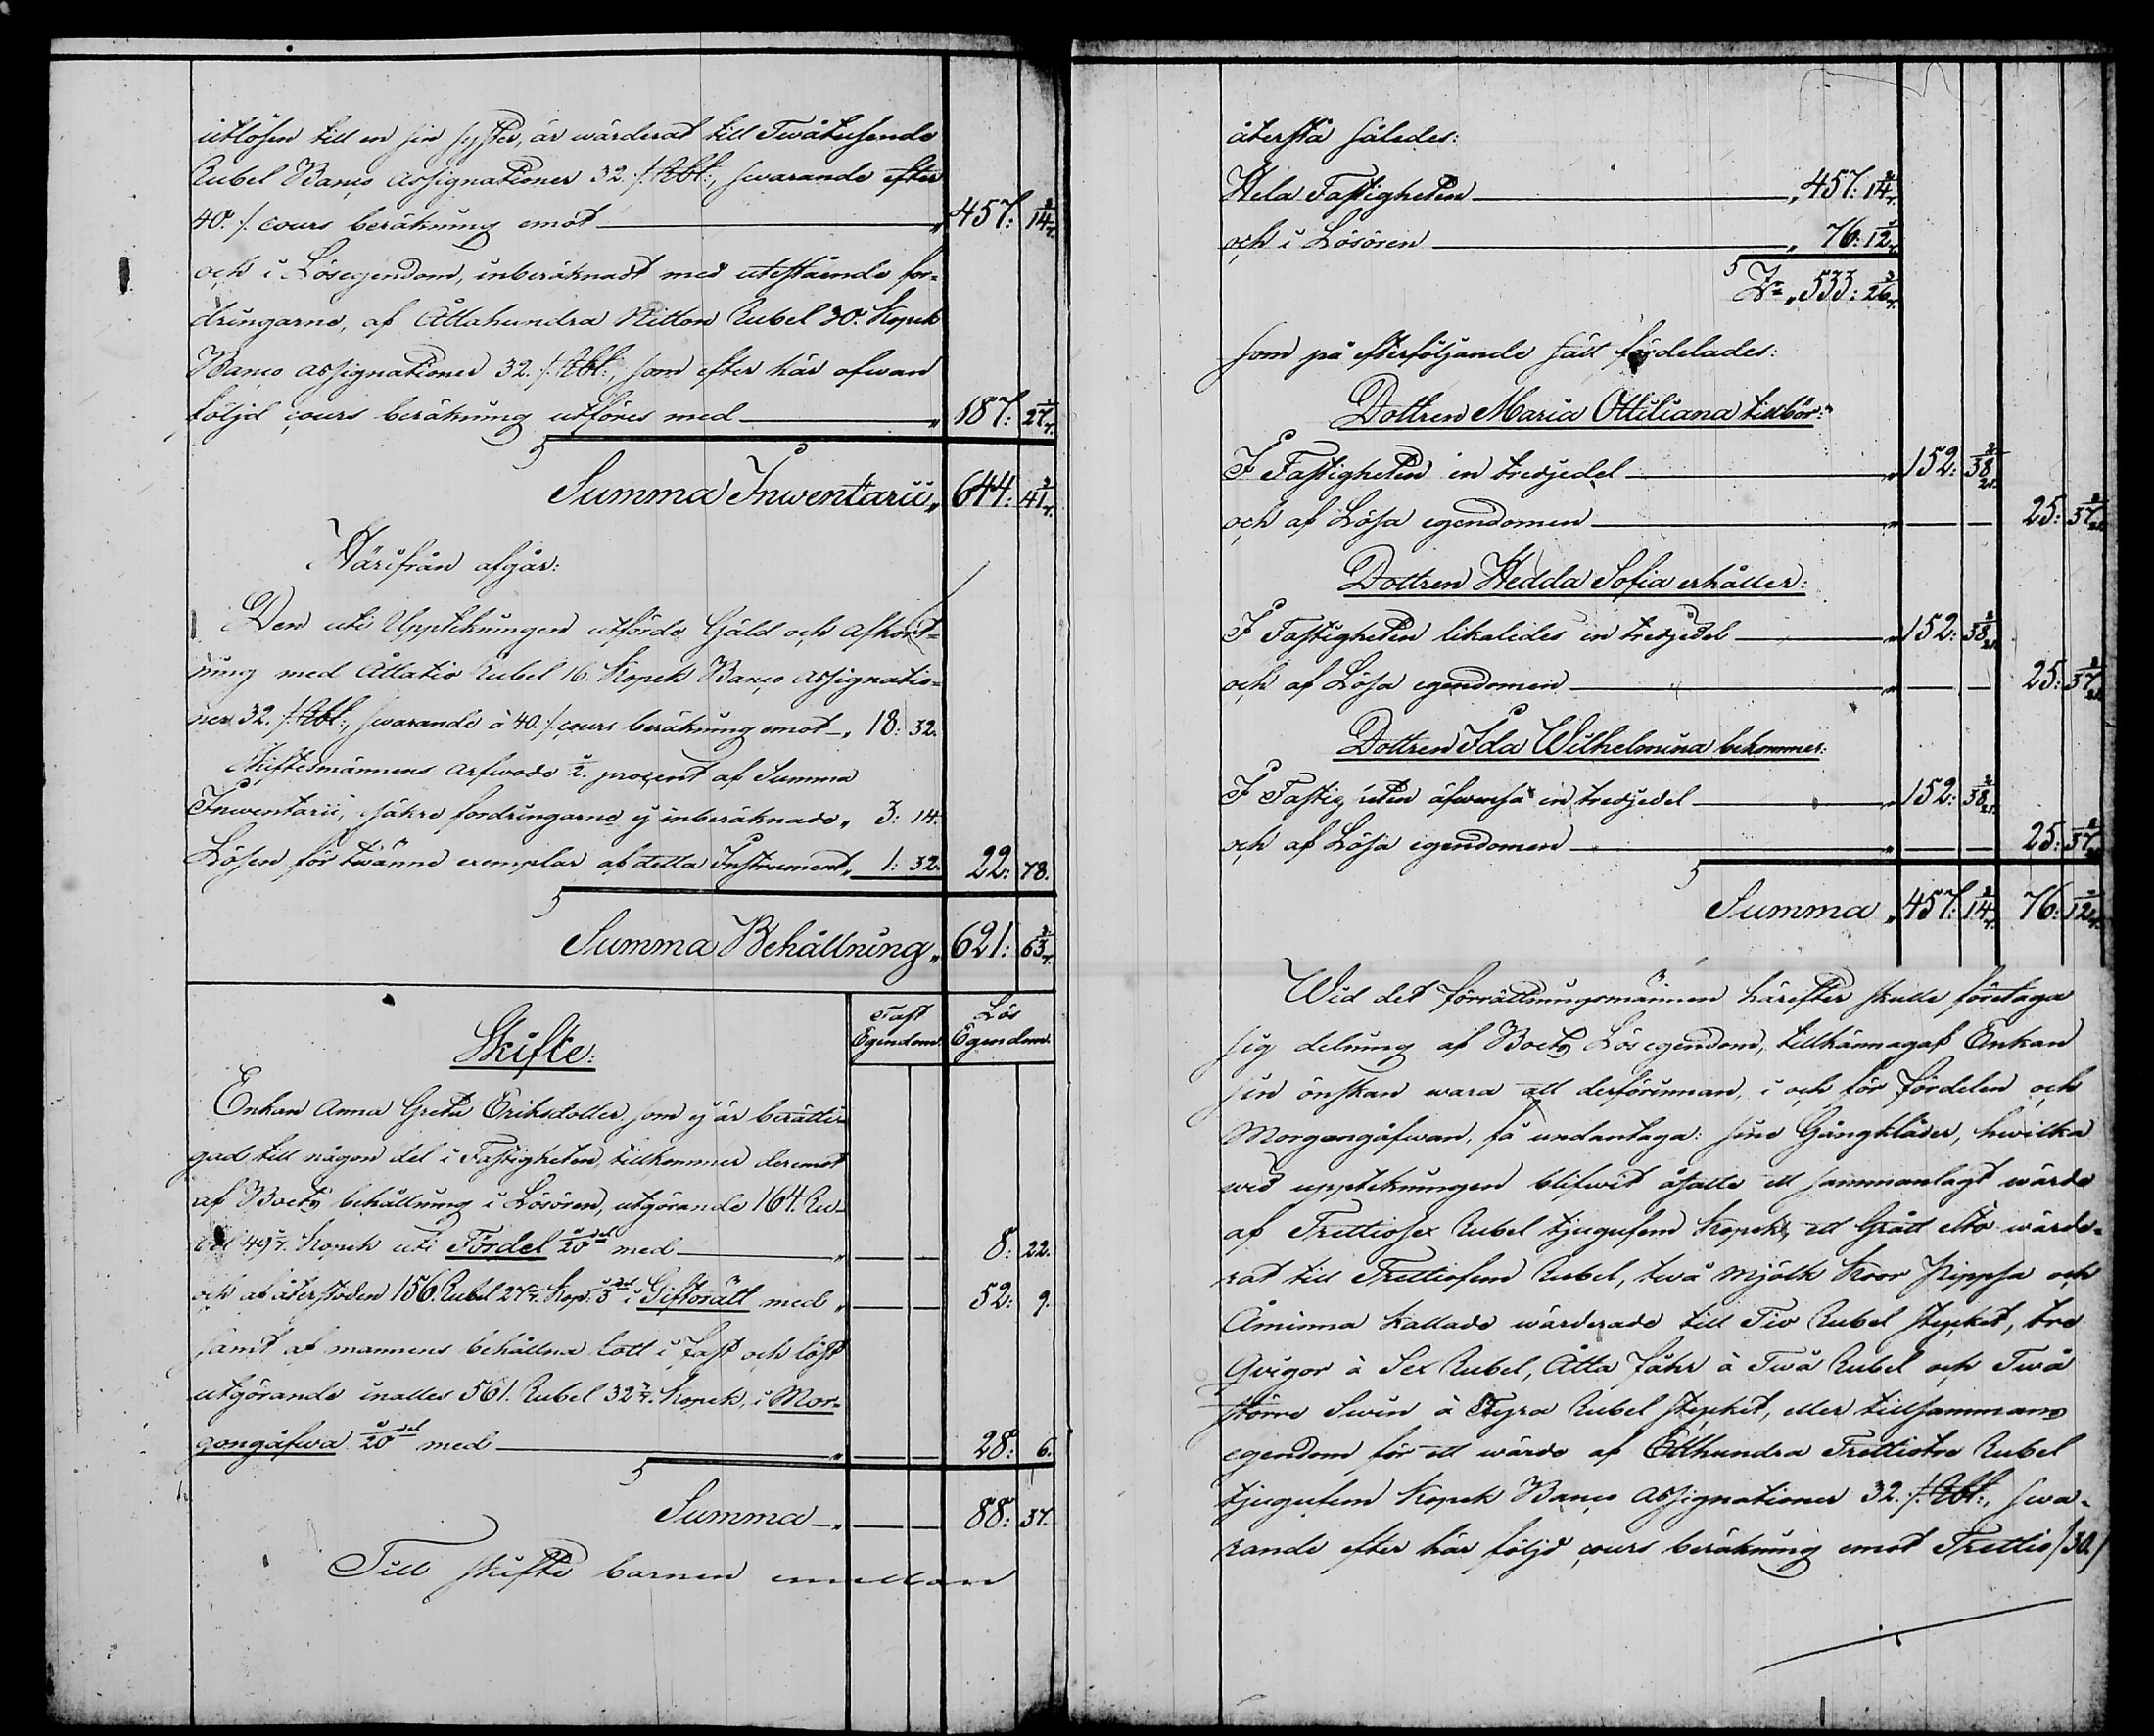 utlösen till en sin syster, är wärderat till Twåtusende
Rubel Banco Assignationer 32. /. Rbl:, swarande efter
40. /. cours beräkning emot — „ 457: 14 2/7.
och i Lösegendom, inberäknadt med utestående for-
dringarne, af Åttahundra Nitton Rubel 30. Kopek
Banco Assignationer 32. /. Rbl:, som efter här ofwan
följd cours beräkning utföres med — „ 187: 27 1/7.
Summa Inwentarii „ 644: 41 3/7.
Härifrån afgår:
Den uti Upptekningen utförde Gäld och Afkort-
ning med Åttatio Rubel 16. Kopek Banco Assignatio-
ner 32. /. Rbl:, swarande à 40. /. cours beräkning emot — „ 18: 32.
Skiftesmännens arfwode 1/2. procent af Summa
Inwentarii, osäkre fordringarne ej inberäknade „ 3: 14.
Lösen för twänne exemplar af detta Instrument „ 1: 32. 22: 78.
Summa Behållning „ 621: 63 3/7.
Skifte:
Fast Egendom. Lös Egendom.
Enkan Anna Greta Eriksdotter, som ej är berätti-
gad till någon del i Fastigheten, tillkommer deremot
af Boets behållning i Lösören, utgörande 164. Ru-
bel 49 1/7. Kopek uti Fördel 1/20 del med — „ — — 8: 22.
och af återstoden 156. Rubel 27 1/7. Kop: 1/3 del i Giftorätt med „ — — 52: 9.
samt af mannens behållna lott i fast och löst
utgörande inalles 561. Rubel 32 3/7. Kopek, i Mor-
gongåfwa 1/20 del med — „ — — 28: 6.
Summa — „ — — 88: 37.
Till skifte barnen emellan
återstå således:
Hela Fastigheten — „ 457: 14 2/7.
och i Lösören — „ 76: 12 1/7.
Sa „ 533: 26 3/7.
som på efterföljande sätt fördelades:
Dottren Maria Ottiliana tillbör:
I Fastigheten en tredjedel — „ 152: 38 2/21.
och af Lösa egendomen — „ — — 25: 37 1/21.
Dottren Hedda Sofia erhåller:
I Fastigheten likaledes en tredjedel — „ 152: 38 2/21.
och af Lösa egendomen — „ — — 25: 37 1/21.
Dottren Ida Wilhelmina bekommer:
I Fastig eten äfwenså en tredjedel — „ 152: 38 2/21.
och af Lösa egendomen — „ — — 25: 37 1/21.
Summa „ 457: 14 2/7. 76: 12 1/7.
Wid det förrättningsmännen härefter skulle företaga
sig delning af Boets Lösegendom, tillkännagaf Enkan
sin önskan wara att derförinnan, i och för fördelen och
Morgongåfwan, få undantaga: sine Gångkläder, hwilka
wid upptekningen blifwit åsatte ett sammanlagt wärde
af Trettiosex Rubel tjugufem Kopek, ett Grått Sto wärde-
rat till Trettiofem Rubel, twå Mjölk Koor Pippsa och
Åminna kallade wärderade till Tio Rubel stycket, tre
Qvigor à Sex Rubel, Åtta Fåhr à Twå Rubel och Twå
större Swin à Fyra Rubel stycket, eller tillsammans
egendom för ett wärde af Etthundra Trettiotre Rubel
tjugufem Kopek Banco Assignationer 32. /. Rbl:, swa-
rande efter här följd cours beräkning emot Trettio /30./